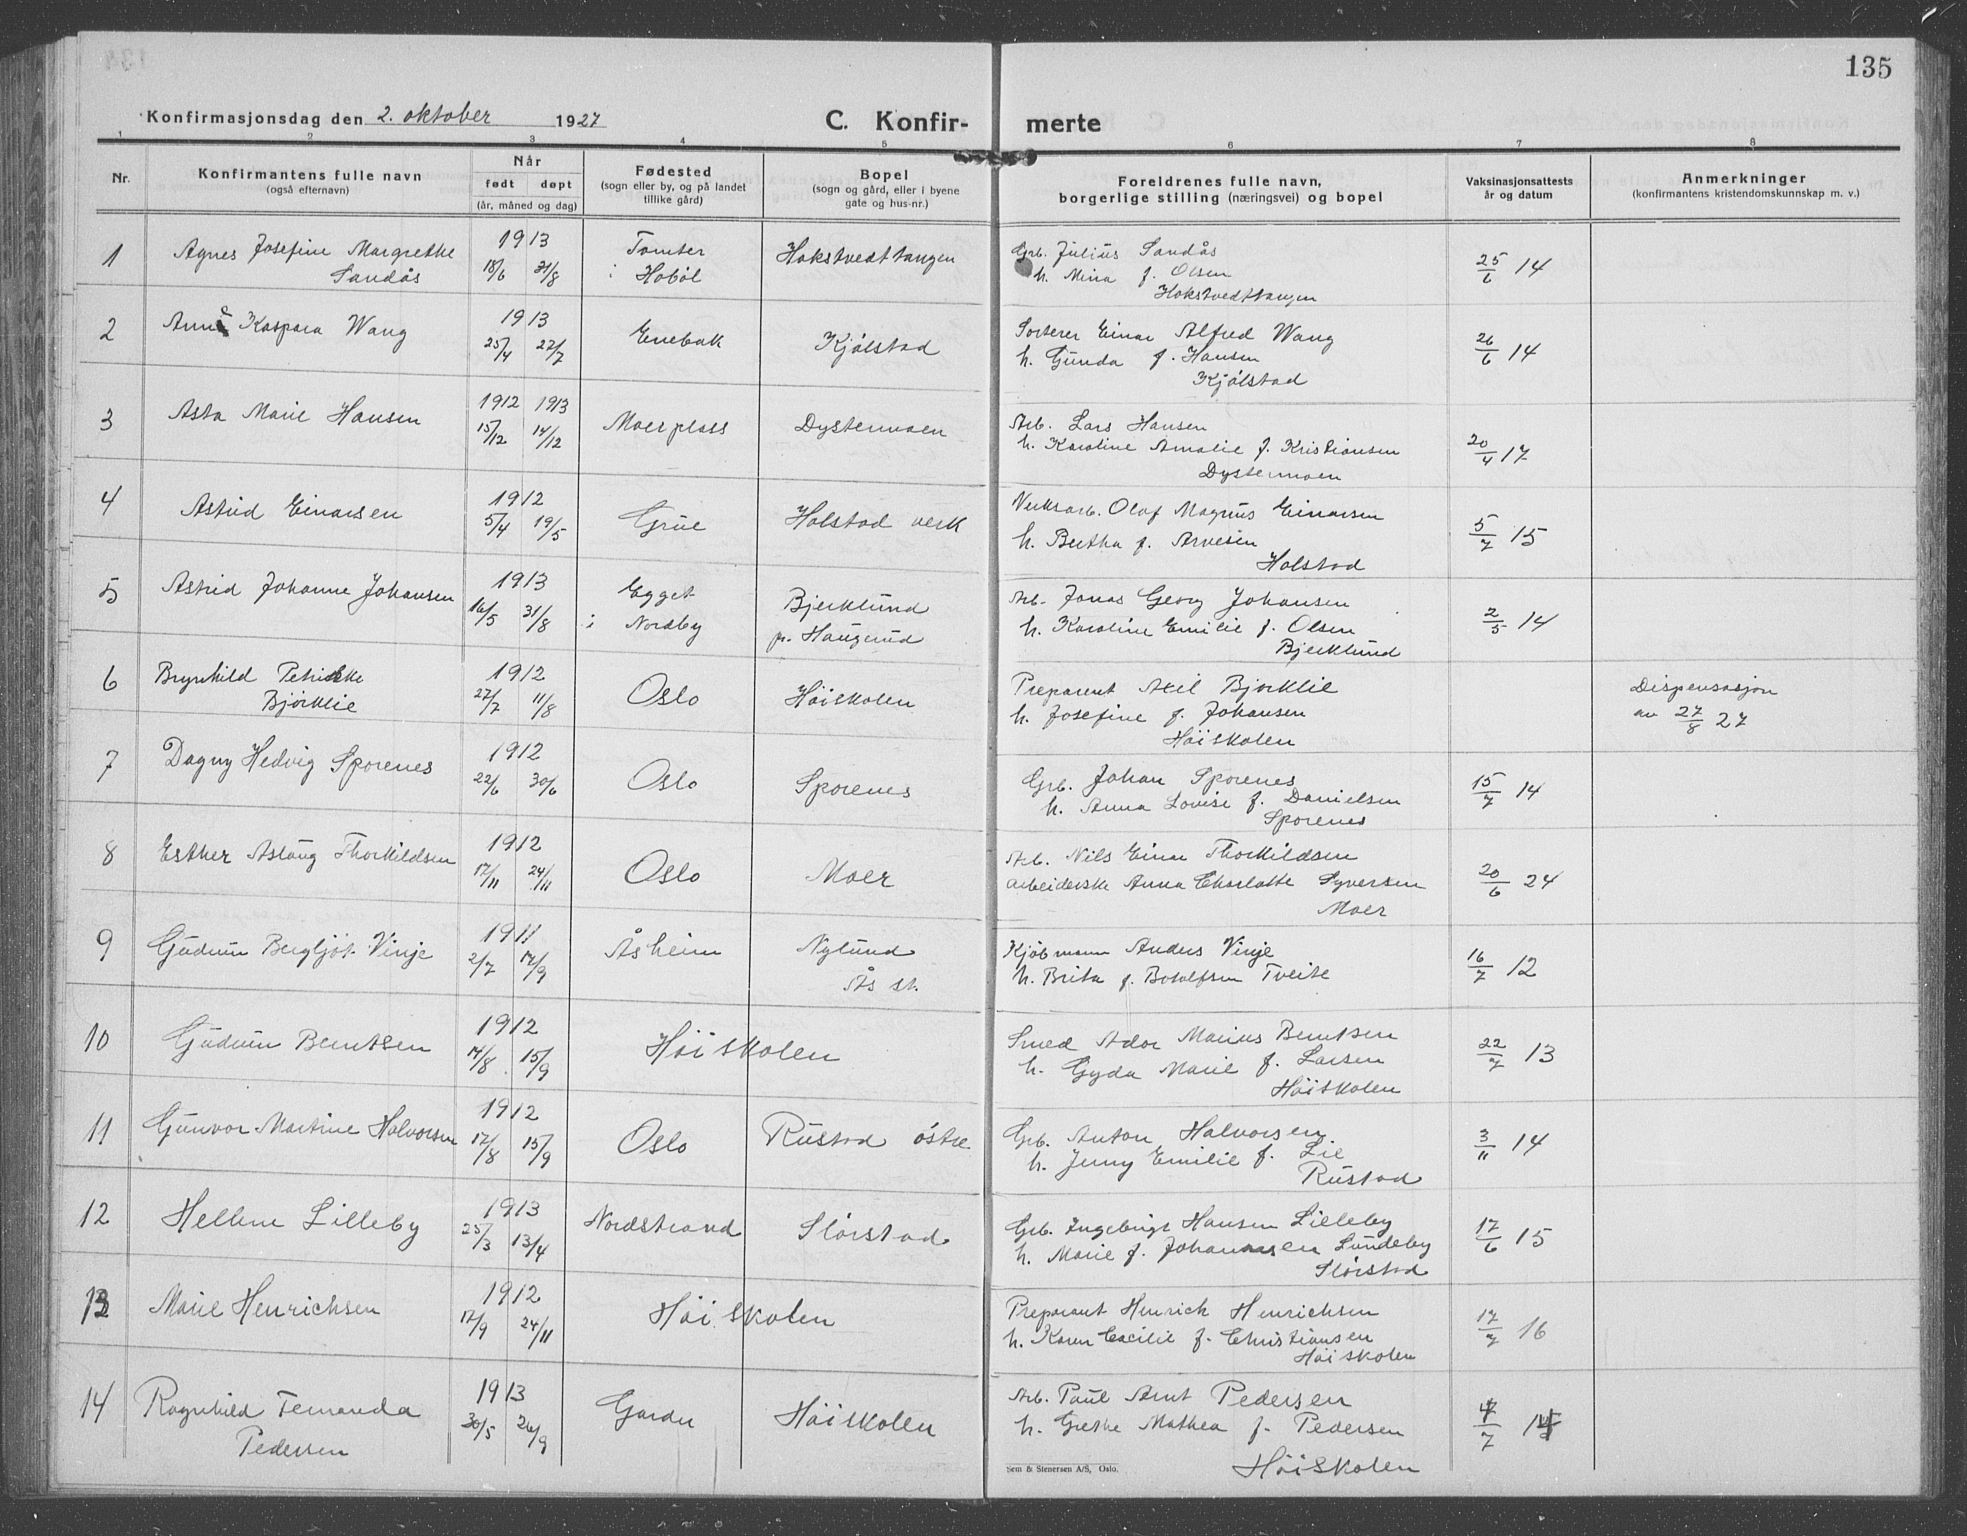 135
Konfirmasjonsdag den 2. oktober 1927
C. Konfirmerte
1 2 3 4 5 6 7 8
Nr.
Konfirmantens fulle navn
(også efternavn)
Når
født døpt
(år, måned og dag)
Fødested
(sogn eller by, og på landet
tillike gård)
Bopel
(sogn og gård, eller i byene
gate og hus-nr.)
Foreldrenes fulle navn,
borgerlige stilling (næringsvei) og bopel
Vaksinasjonsattests
år og datum
Anmerkninger
(konfirmantens kristendomskunnskap m. v.)
1 Agnes Josefine Margrethe
Sandås
1913
18/6 31/8
Tomter
i Hobøl
Hokstvedttangen
Grb. Julius Sandås
h. Mina f. Olsen
Hokstvedttangen
25/6 14
2 Anne Kaspara Wang
1913
25/4 27/7
Enebak
Kjølstad
Sorterer Einar Alfred Wang
h. Gunda f. Hansen
Kjølstad
26/6 14
3 Asta Marie Hansen
1912 1913
15/12 14/12
Moerplass
Dystermoen
Arb. Lars Hansen
h. Karoline Amalie f. Kristiansen
Dystermoen
20/4 17
4 Astrid Einarsen
1912
5/4 19/5
Grue
Holstad verk
Verksarb. Olaf Magnus Einarsen
h. Bertha f. Arvesen
Holstad
5/7 15
5 Astrid Johanne Johansen
1913
16/5 31/8
Egget
i Nordby
Bjerklund
pr. Haugerud
Arb. Jonas Georg Johansen
h. Karoline Emilie f. Olsen
Bjerklund
2/5 14
6 Brynhild Petrikke
Bjørklie
1912
27/7 11/8
Oslo
Høiskolen
Preparent Axel Bjørklie
h. Josefine f. Johansen
Høiskolen
Dispensasjon
av 27/8 27
7 Dagny Hedvig Sporenes
1912
22/6 30/6
Oslo
Sporenes
Grb. Johan Sporenes
h. Anna Lovise f. Danielsen
Sporenes
15/7 14
8 Esther Aslaug Thorkildsen
1912
17/11 24/11
Oslo
Moer
Arb. Nils Einar Thorkildsen
arbeiderske Anna Charlotte Syversen
Moer
20/6 24
9 Gudrun Bergljot Vinje
1911
2/7 17/9
Åsheim
Nylund
Ås st.
Kjøbmann Anders Vinje
h. Brita f. Botolfsen Tveite
16/7 12
10 Gudrun Berntsen
1912
14/8 15/9
Høiskolen
Smed Ador Marius Berntsen
h. Gyda Marie f. Larsen
Høiskolen
22/7 13
11 Gunvor Martine Halvorsen
1912
17/8 15/9
Oslo
Rustad østre
Grb. Anton Halvorsen
h. Jenny Emilie f. Lie
Rustad
3/11 14
12 Hellene Lilleby
1913
25/3 13/4
Nordstrand
Slørstad
Grb. Ingebrigt Hansen Lilleby
h. Marie f. Johannesen Lundeby
Slørstad
17/6 15
13 Marie Henrichsen
1912
17/9 24/11
Høiskolen
Preparant Henrich Henrichsen
h. Karen Cecilie f. Christiansen
Høiskolen
17/7 16
14 Ragnhild Fernanda
Pedersen
1913
30/5 26/9
Garder
Høiskolen
Arb. Paul Arnt Pedersen
h. Grethe Mathea f. Pedersen
Høiskolen
Sem & Stenersen A/S, Oslo.